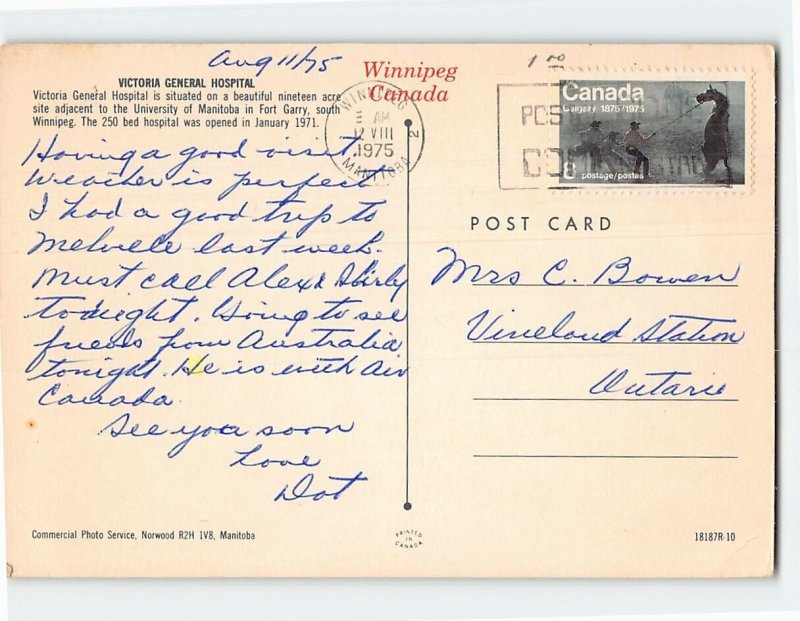 Aug 11/75
VICTORIA GENERAL HOSPITAL
Victoria General Hospital is situated on a beautiful nineteen acre
site adjacent to the University of Manitoba in Fort Garry, south
Winnipeg. The 250 bed hospital was opened in January 1971.
Winnipeg
Canada
WINNIPEG
AM
12 VIII
1975
MANITOBA
2
Canada
Calgary 1875/1975
8 postage/postes
POST CARD
Having a good visit.
Weather is perfect
I had a good trip to
Melville last week.
Must call Alex & Shirly
tonight. Going to see
friends from Australia
tonight. He is with Air
Canada.
See you soon
Love
Dot
Mrs C. Bowen
Vineland Station
Ontario
Commercial Photo Service, Norwood R2H 1V8, Manitoba
PRINTED
IN
CANADA
18187R-10